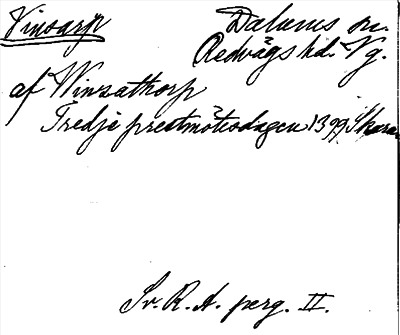 Vinsarp Dalums sn.
Redvägs hd. Vg.
af Winsathorp
Tredje prestmötesdagen 1399 Skara
Sv. R. A. perg. II.